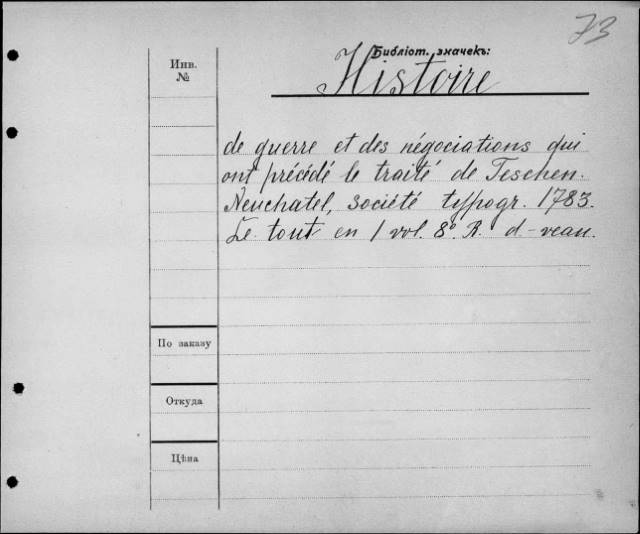 73
Библіот. значекъ:
Инв.
№
Histoire
de guerre et des négociations qui
ont précédé le traité de Teschen.
Neuchatel, société typogr. 1783.
Le tout en 1 vol. 8º R. d.-veau.
По заказу
Откуда
Цѣна